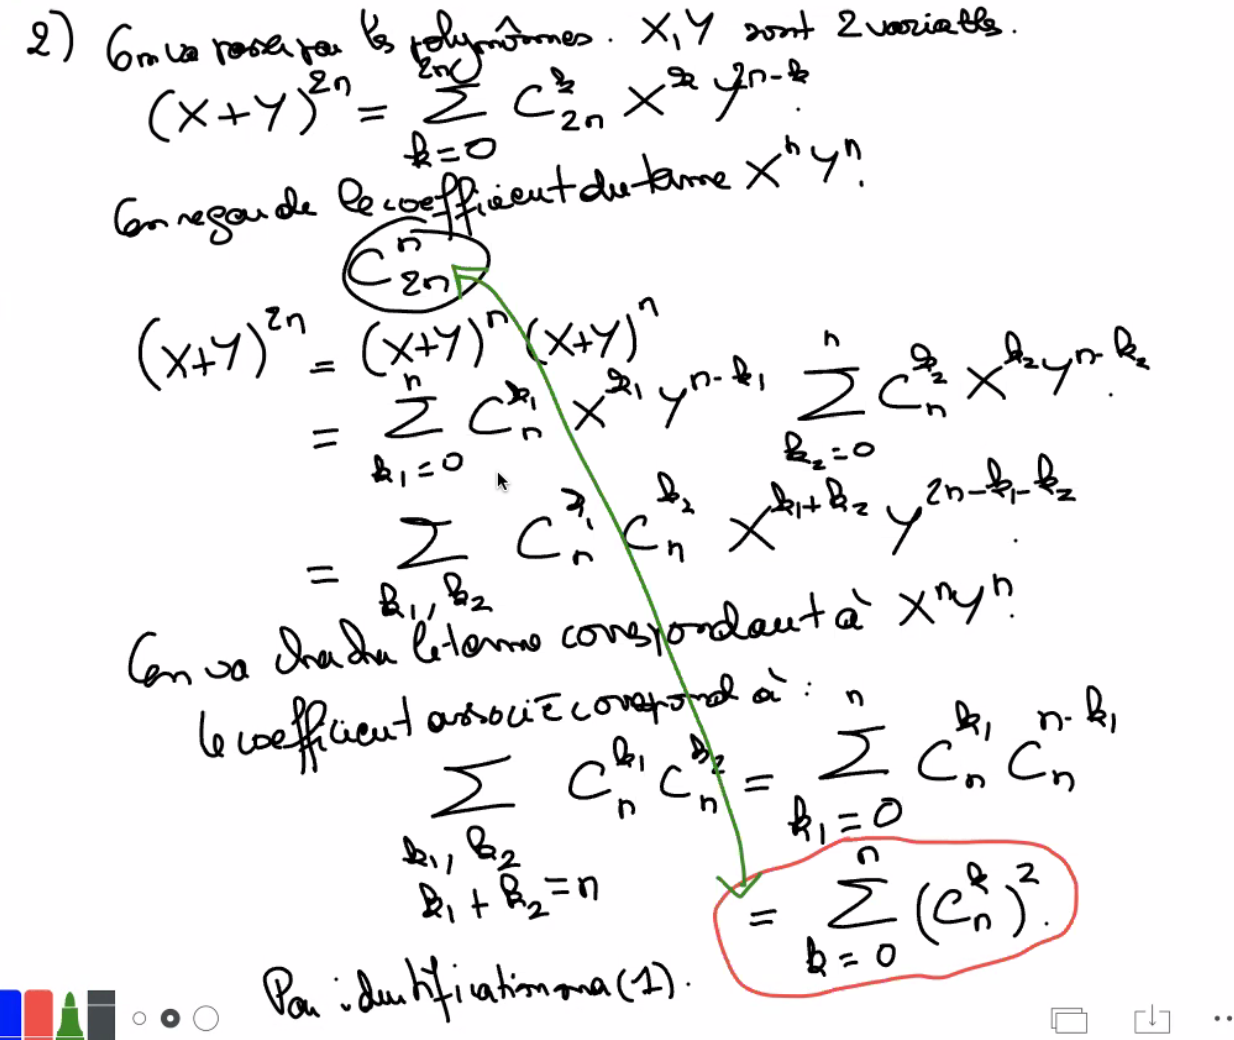 2) On va passer par les polynômes. X, Y sont 2 variables.
(X+Y)^{2n} = \sum_{k=0}^{2n} C_{2n}^{k} X^{k} Y^{2n-k}.
On regarde le coefficient du terme X^n Y^n.
C_{2n}^{n}
(X+Y)^{2n} = (X+Y)^n (X+Y)^n
= \sum_{k_1=0}^{n} C_n^{k_1} X^{k_1} Y^{n-k_1} \sum_{k_2=0}^{n} C_n^{k_2} X^{k_2} Y^{n-k_2}.
= \sum_{k_1, k_2} C_n^{k_1} C_n^{k_2} X^{k_1+k_2} Y^{2n-k_1-k_2}.
On va chercher le terme correspondant à X^n Y^n.
le coefficient associé correspond à :
\sum_{k_1, k_2, k_1+k_2=n} C_n^{k_1} C_n^{k_2} = \sum_{k_1=0}^{n} C_n^{k_1} C_n^{n-k_1}
= \sum_{k=0}^{n} (C_n^k)^2.
Par identification on a (1).